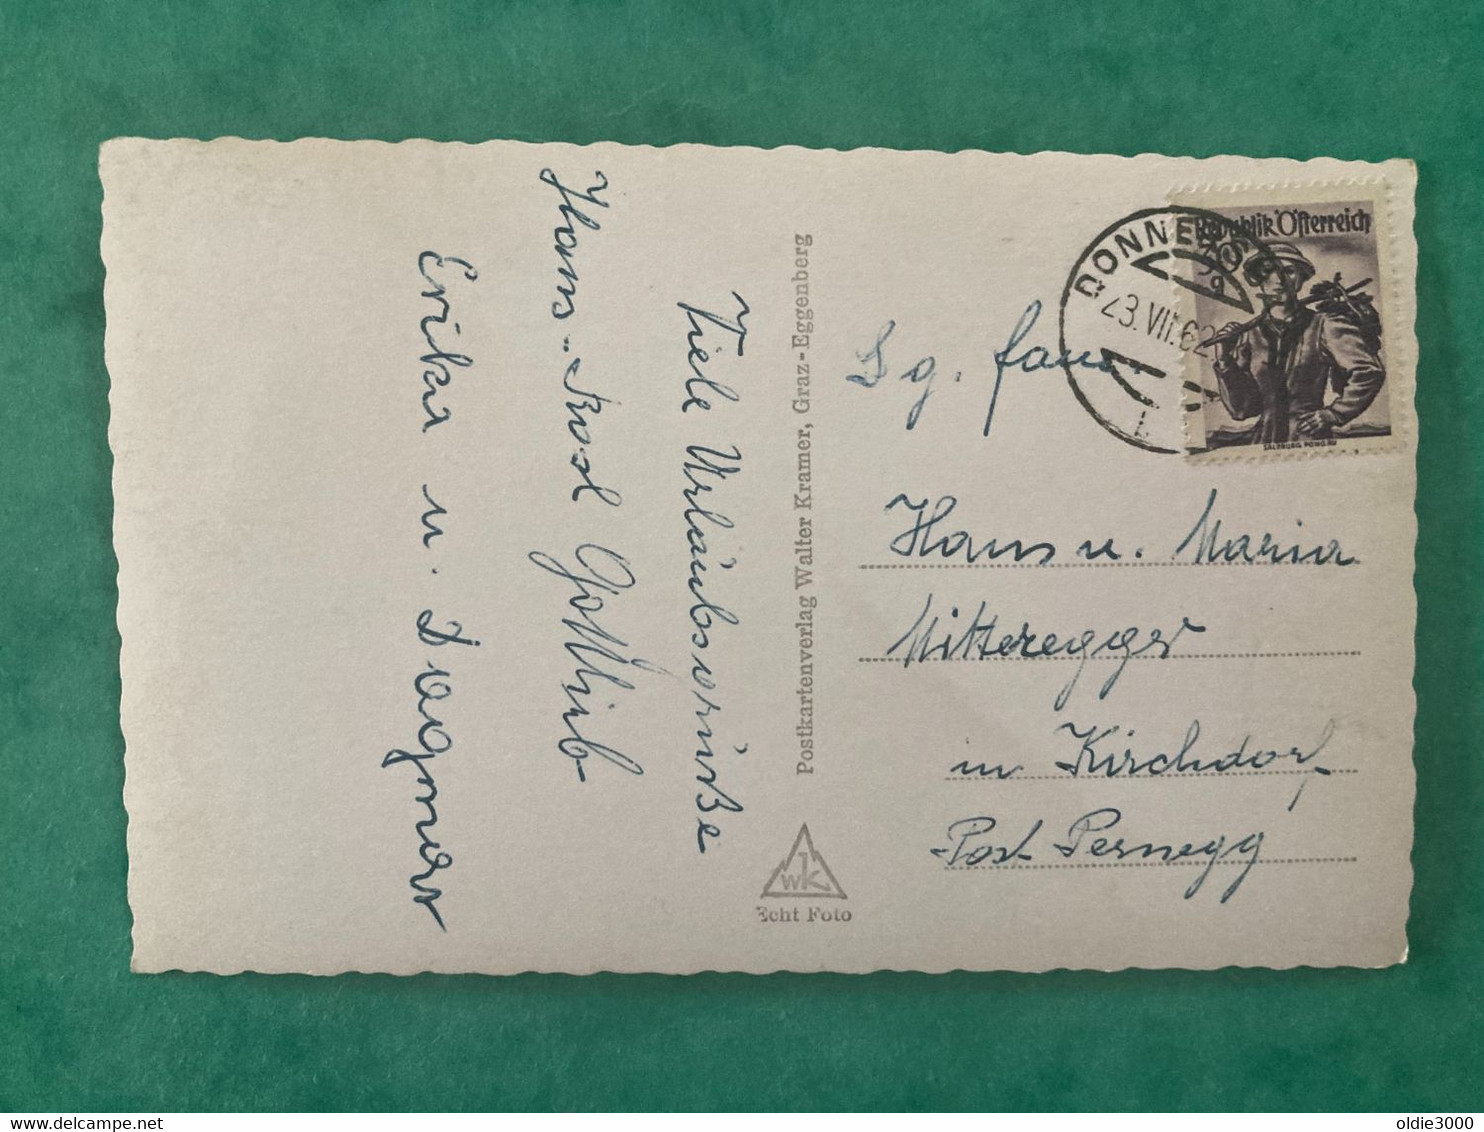 Viele Urlaubsgrüße
Hans. Rosl Gottlieb
Erika u. Dagmar
Postkartenverlag Walter Kramer, Graz-Eggenberg
WK
Echt Foto
Republik Österreich
SALZBURG PONGAU
23.VII.62
Sg. Fam.
Hans u. Maria
Mitteregger
in Kirchdorf
Post Pernegg
oldie3000